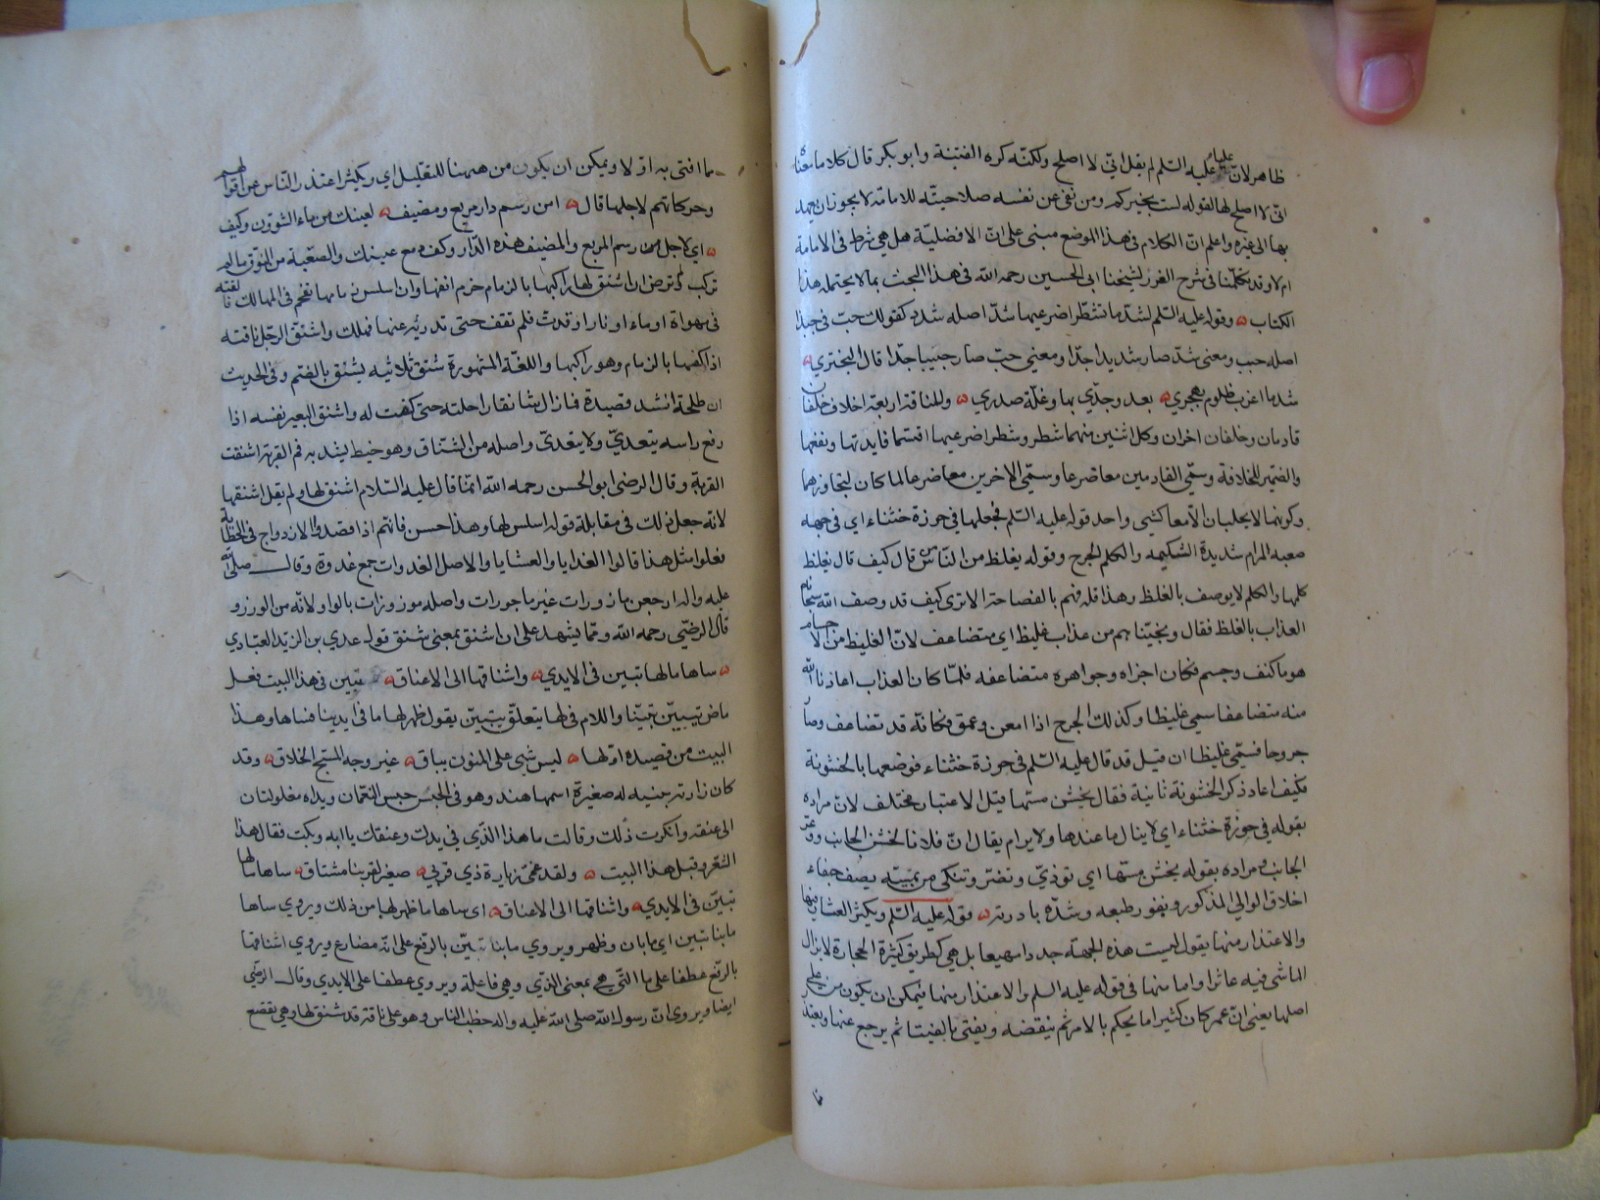 ظاهر لان عليا عليه السلم لم يقل اني لا اصلح ولكنه كره الفتنة وابو بكر قال كلاما معناه
اني لا اصلح لها لقوله لست بخيركم ومن نفى عن نفسه صلاحيته للامامة لا يجوز ان يعهد
بها الى غيره واعلم ان الكلام في هذا الموضع مبني على ان الافضلية هل هي شرط في الامامة
ام لا وقد تكلمنا في شرح الغرر لشيخنا ابي الحسين رحمه الله في هذا البحث بما لا يحتمله هذا
الكتاب وقوله عليه السلم لشد ما تشطرا ضرعيها شد اصله شدد كقولك حب في حبذا
اصله حبب ومعنى شد صار شديدا جدا ومعنى حب صار حبيبا جدا قال البحتري
شد ما اغريت ظلوم بهجري بعد وجدي بها وغلة صدري وللناقة اربعة اخلاف خلفان
قادمان وخلفان اخران وكل اثنين منهما شطر وشطرا ضرعيها اقتسما فايدتها ونفعها
والضمير للخلافة وسمى القادمين معا ضرعا وسمى الاخرين معا ضرعا لما كان لتجاورهما
وكونهما لا يحلبان الا معا كشيء واحد قوله عليه السلم فجعلها في حوزة خشناء اي في جهة
صعبة المرام شديدة الشكيمة والكلم الجرح وقوله يغلظ من الناس من قال كيف قال يغلظ
كلمها والكلم لا يوصف بالغلظ وهذا قلة فهم بالفصاحة الا ترى كيف قد وصف الله سبحانه
العذاب بالغلظ فقال ونجيناهم من عذاب غليظ اي متضاعف لان الغليظ من الاجسام
هو ما كثف وجسم فكان اجزاه وجواهره متضاعفة فلما كان العذاب اعاذنا الله
منه متضاعفا سمي غليظا وكذلك الجرح اذا امعن وعمق فكانه قد تضاعف وصار
جروحا فسمي غليظا ان قيل قد قال عليه السلم في حوزة خشناء فوصفها بالخشونة
فكيف اعاد ذكر الخشونة ثانية فقال يخشن مستها قيل الاعتبار مختلف لان مراده
بقوله في حوزة خشناء اي لا ينال ما عندها ولا يرام يقال ان فلانا لخشن الجانب ووعر
الجانب ومراده بقوله يخشن مسها اي تؤذي وتضر وتنكي من يمسه يصف جفاء
اخلاق الوالي المذكور ونفور طبعه وشدة بادرته قوله عليه السلم ويكثر العثار منها
والاعتذار منها يقول ليست هذه الجهة جددا مهيعا بل هي كطريق كثيرة الحجارة لا يزال
الماشي فيه عاثرا واما منها في قوله عليه السلم والاعتذار منها فيمكن ان يكون من على
اصلها يعني ان عمر كان كثيرا ما يحكم بالامر ثم ينقضه ويفتي بالفتيا ثم يرجع عنها ويعتذر
مما افتى به اولا ويمكن ان يكون من ههنا للتعليل اي ويكثر اعتذار الناس عن افعالهم
وحركاتهم لاجلها قال امن رسم دار مربع ومصيف لعينك من ماء الشؤون وكيف
اي لاجل من رسم المربع والمصيف هذه الدار وكف دمع عينك والصعبة من النوق ما لم
تركب ولم ترض ان اشنق لها راكبها بالزمام خرم انفها وان اسلس زمامها تقحم في المهالك فالقته
في مهواة او ماء او نار او ندت فلم تقف حتى ترديه عنها فهلك واشنق الرجل ناقته
اذا كفها بالزمام وهو راكبها واللغة المشهورة شنق ثلاثيه يشنق بالضم وفي الحديث
ان طلحة انشد قصيدة فما زال شانقا راحلته حتى كتبت له واشنق البعير نفسه اذا
رفع راسه يتعدى ولا يتعدى واصله من الشناق وهو خيط يشد به فم القربة اشنقت
القربة وقال الرضي ابو الحسن رحمه الله انما قال عليه السلام اشنق لها ولم يقل اشنقها
لانه جعل ذلك في مقابلة قوله اسلس لها وهذا حسن فانهم اذا قصدوا الازدواج في الخطابة
فعلوا مثل هذا قالوا الغدايا والعشايا والاصل الغدوات جمع غدوة وقال صلى الله
عليه واله ارجعن مازورات غير ماجورات واصله موزورات بالواو لانه من الوزر و
قال الرضي رحمه الله ومما يشهد على ان اشنق بمعنى شنق قول عدي بن الزيد العبادي
ساها ما لها تبين في الايدي واشناقها الى الاعناق تبين في هذا البيت فعل
ماض تبين تبينا واللام في لها يتعلق بتبين يقول ظهر لها ما في ايدينا فساها وهذا
البيت من قصيدة اولها ليس شيء على المنون بباق غير وجه المسبح الخلاق وقد
كان زارته بنية له صغيرة اسمها هند وهو في الحبس حبس النعمان ويداه مغلولتان
الى عنقه وانكرت ذلك وقالت ما هذا الذي في يدك وعنقك يا ابه وبكت فقال هذا
الشعر وقبل هذا البيت ولقد غمني زيارة ذي قربى صغير لقربنا مشتاق ساها ما لها
تبين في الايدي واشناقها الى الاعناق اي ساها ما ظهر لها من ذلك ويروى ساها
ما بنا تبين اي ما بان وظهر ويروى ما بنا تبين بالرفع على انه مضارع ويروى اشناقها
بالرفع عطفا على ما التي هي بمعنى الذي وهي فاعلة ويروى عطفا على الايدي وقال الرضي
ايضا ويروى ان رسول الله صلى الله عليه واله خطب الناس وهو على ناقة قد شنق لها وهي تقصع